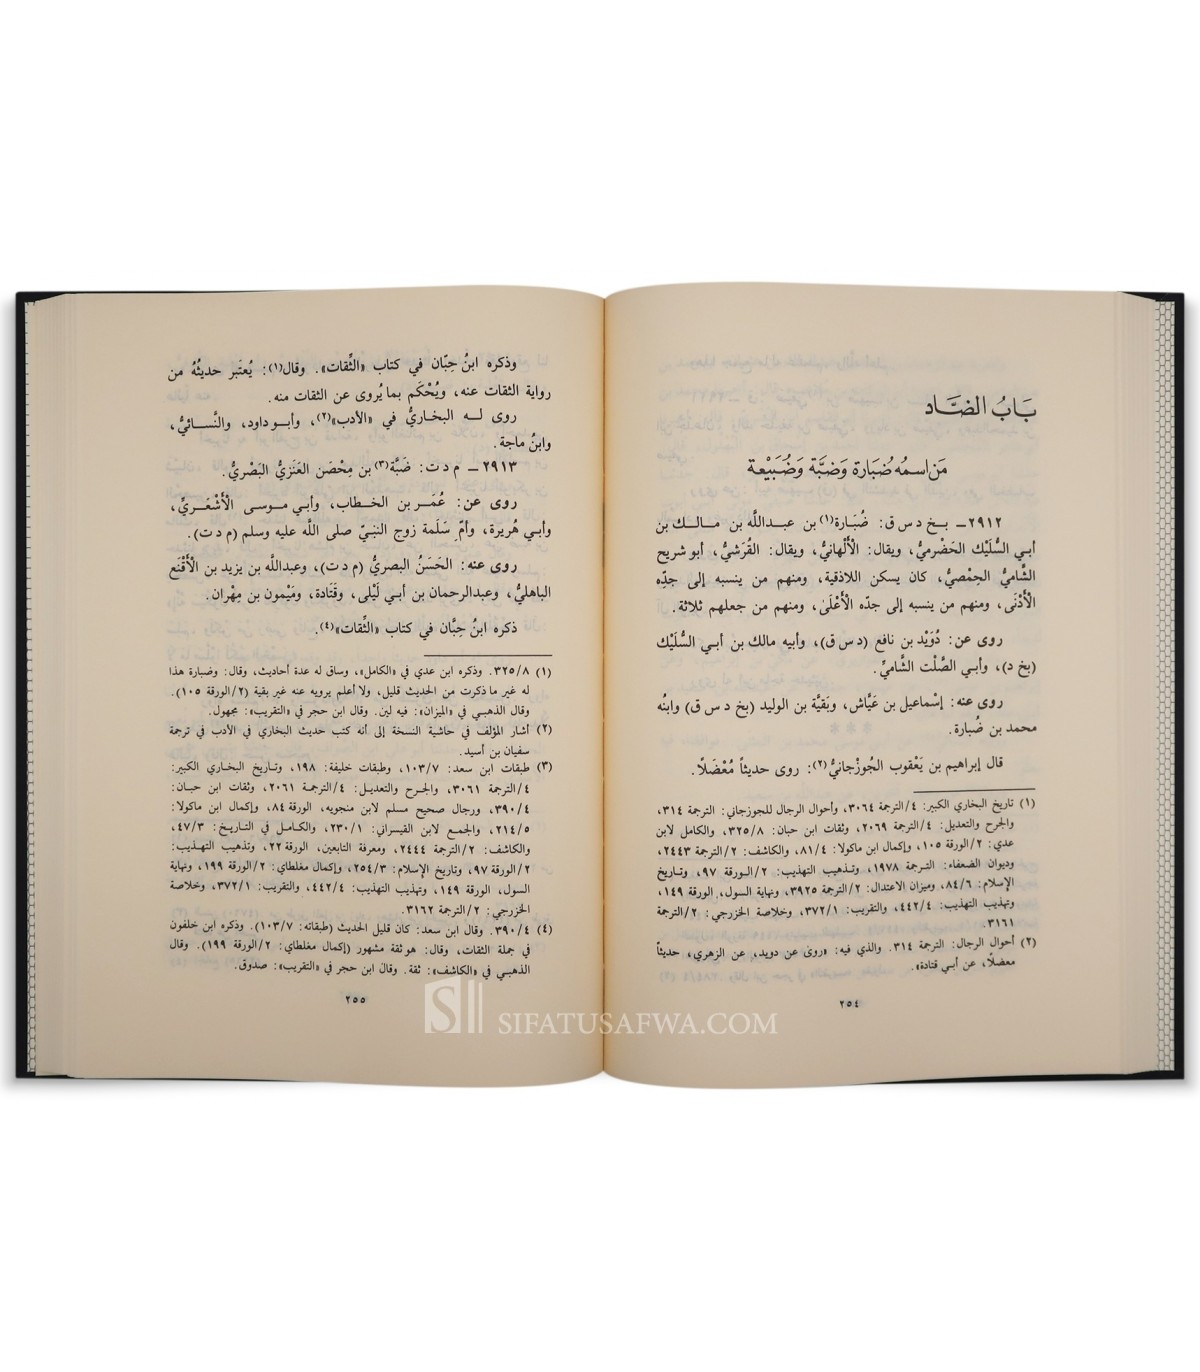 بَابُ الضَّاد
مَن اسمُه ضُبَارة وَضبَّة وَضُبَيْعة
٢٩١٢ـ بـخ د س ق: ضُبَارة(١) بن عبدالله بن مـالـك بن
أبـي السُّلَيْك الحَضْرميُّ، ويقال: الْأَلْهانيُّ، ويقال: القُرَشيُّ، أبو شريح
الشَّاميُّ الحِمْصيُّ، كان يسكن اللاذقية، ومنهم من ينسبه إلى جدِّه
الْأَدْنَى، ومنهم من ينسبه إلى جدّه الْأَعْلَىٰ، ومنهم من جعلهم ثلاثة.
روى عن: دُوَيْد بن نافع (د س ق)، وأبيه مالك بن أبـي السُّلَيْك
(بخ د)، وأبـي الصَّلْت الشَّاميِّ.
روى عنه: إسْماعيل بن عَيَّاش، وبَقيَّة بن الوليد (بخ د س ق) وابنُه
محمد بن ضُبارة.
قال إبراهيم بن يَعْقوب الجُوزْجانيُّ(٢): روى حديثاً مُعْضَلًا.
(١) تاريخ البخاري الكبير: ٤/الترجمة ٣٠٦٤، وأحوال الرجال للجوزجاني: الترجمة ٣١٤،
والجرح والتعديل: ٤/الترجمة ٢٠٦٩، وثقات ابن حبان: ٣٢٥/٨، والكامل لابن
عدي: ٢/الورقة ١٠٥، وإكمال ابن ماكولا: ٨١/٤، والكاشف: ٢/الترجمة ٢٤٤٣،
وديوان الضعفاء: الترجمة ١٩٧٨، وتذهيب التهذيب: ٢/الورقة ٩٧، وتاريخ
الإسلام: ٨٤/٦، وميزان الاعتدال: ٢/الترجمة ٣٩٢٥، ونهاية السول، الورقة ١٤٩،
وتهذيب التهذيب: ٤٤٢/٤، والتقريب: ٣٧٢/١، وخلاصة الخزرجي: ٢/الترجمة
٣١٦١.
(٢) أحوال الرجال: الترجمة ٣١٤. والذي فيه: «روى عن دويد، عن الزهري، حديثاً
معضلًا، عن أبي قتادة».
٢٥٤
وذكره ابنُ حِبّان في كتاب «الثِّقات». وقال(١): يُعتَبر حديثُهُ من
رواية الثقات عنه، ويُحْكَم بما يُروى عن الثقات منه.
روى لـه البخاريُّ في «الأدب»(٢)، وأبـو داود، والنَّسـائيُّ،
وابنُ ماجة.
٢٩١٣ـ م د ت: ضَبَّة(٣) بن مِحْصَن العَنَزيُّ البَصْريُّ.
روى عن: عُمَـر بن الخـطاب، وأبـي مـوسى الْأَشْعَـريِّ،
وأبـي هُريرة، وأمّ سَلَمة زوج النبيّ صلى الله عليه وسلم (م د ت).
روى عنه: الحَسَنُ البصريُّ (م د ت)، وعبدالله بن يزيد بن الْأَقْنَع
الباهليُّ، وعبدالرحمان بن أبـي لَيْلى، وقَتَادة، ومَيْمون بن مِهْران.
ذكره ابنُ حِبَّان في كتاب «الثِّقات»(٤).
(١) ٣٢٥/٨. وذكره ابن عدي في «الكامل»، وساق له عدة أحاديث، وقال: وضبارة هذا
له غير ما ذكرت من الحديث قليل، ولا أعلم يرويه عنه غير بقية (٢/الورقة ١٠٥).
وقال الذهبي في «الميزان»: فيه لين. وقال ابن حجر في «التقريب»: مجهول.
(٢) أشار المؤلف في حاشية النسخة إلى أنه كتب حديث البخاري في الأدب في ترجمة
سفيان بن أسيد.
(٣) طبقات ابن سعد: ١٠٣/٧، وطبقات خليفة: ١٩٨، وتاريخ البخاري الكبير:
٤/الترجمة ٣٠٦١، والجرح والتعديل: ٤/الترجمة ٢٠٦١، وثقات ابن حبان:
٣٩٠/٤، ورجال صحيح مسلم لابن منجويه، الورقة ٨٤، وإكمال ابن ماكولا:
٢١٤/٥، والجمع لابن القيسراني: ٢٣٠/١، والكامـل في التـاريـخ: ٤٧/٣،
والكاشف: ٢/الترجمة ٢٤٤٤، ومعرفة التابعين، الورقة ٢٢، وتذهيب التهذيب:
٢/الورقة ٩٧، وتاريخ الإسلام: ٢٥٤/٣، وإكمال مغلطاي: ٢/الورقة ١٩٩، ونهاية
السول، الورقة ١٤٩، وتهذيب التهذيب: ٤٤٢/٤، والتقريب: ٣٧٢/١، وخلاصة
الخزرجي: ٢/الترجمة ٣١٦٢.
(٤) ٣٩٠/٤. وقال ابن سعد: كان قليل الحديث (طبقاته: ١٠٣/٧). وذكره ابن خلفون
في جملة الثقات، وقال: هو ثقة مشهور (إكمال مغلطاي: ٢/الورقة ١٩٩). وقال
الذهبي في «الكاشف»: ثقة. وقال ابن حجر في «التقريب»: صدوق.
٢٥٥
SIFATUSAFWA.COM